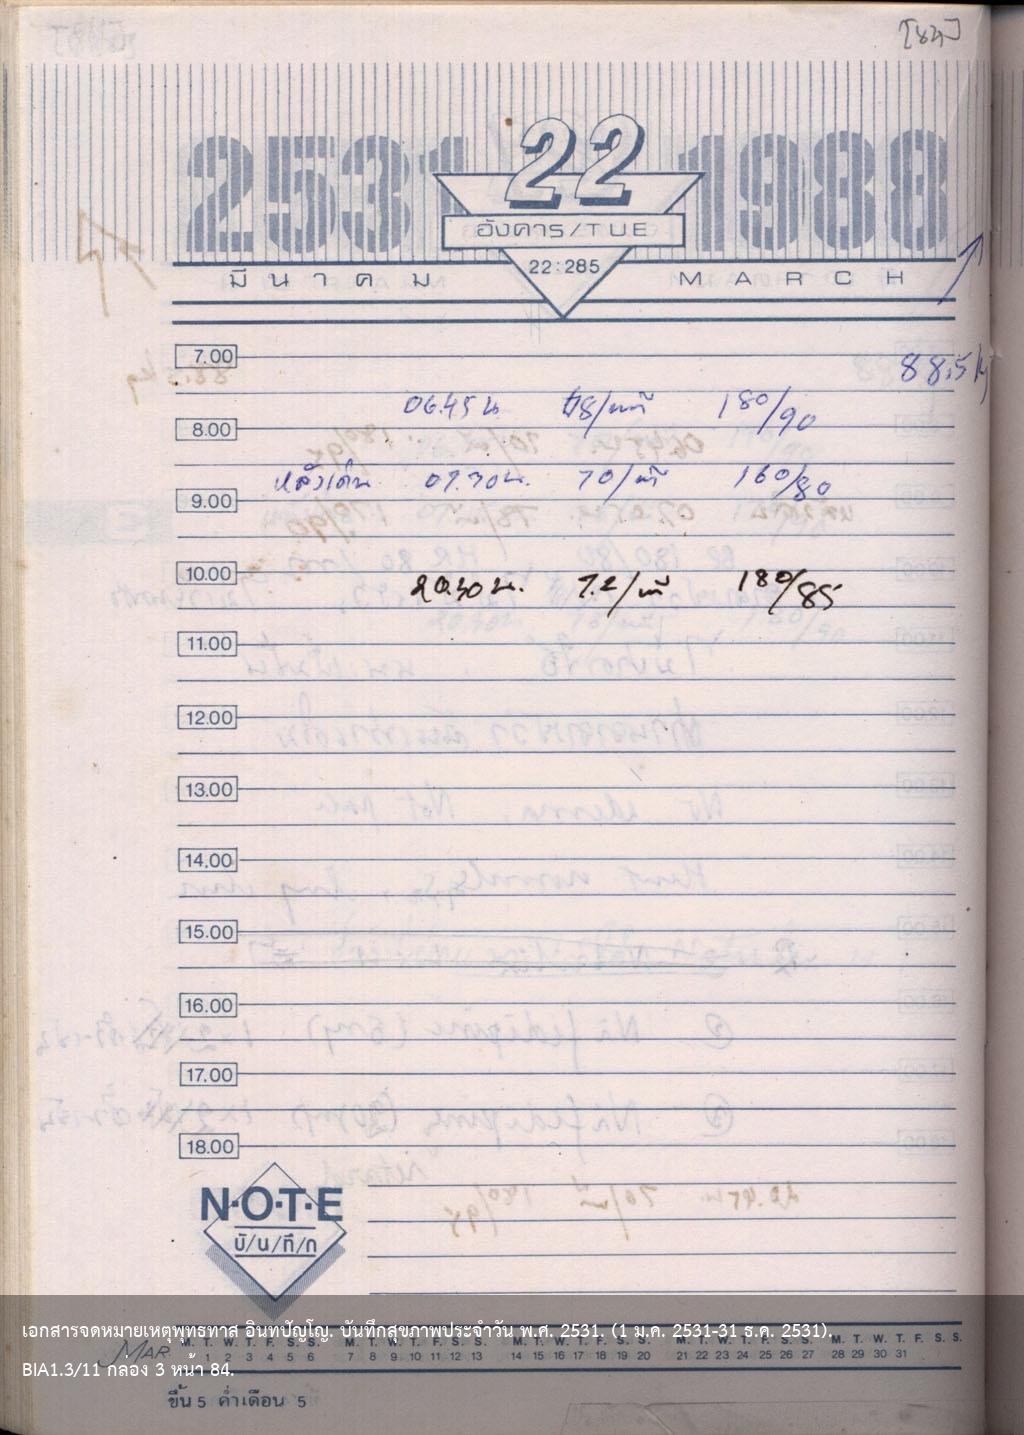 [84]
2531 22 1988
อังคาร/TUE
มีนาคม 22:285 MARCH
7.00
88.5 kg
06.45 น. 78/นาที 180/90
8.00
หลังเดิน 07.30 น. 70/นาที 160/80
9.00
10.00
20.30 น. 72/นาที 180/85
11.00
12.00
13.00
14.00
15.00
16.00
17.00
18.00
N·O·T·E
บั/น/ทึ/ก
เอกสารจดหมายเหตุพุทธทาส อินทปัญโญ. บันทึกสุขภาพประจำวัน พ.ศ. 2531. (1 ม.ค. 2531-31 ธ.ค. 2531).
MAR M. T. W. T. F. S. S. M. T. W. T. F. S. S. M. T. W. T. F. S. S. M. T. W. T. F. S. S. M. T. W. T. F. S. S.
1 2 3 4 5 6 7 8 9 10 11 12 13 14 15 16 17 18 19 20 21 22 23 24 25 26 27 28 29 30 31
BIA1.3/11 กล่อง 3 หน้า 84.
ขึ้น 5 ค่ำเดือน 5